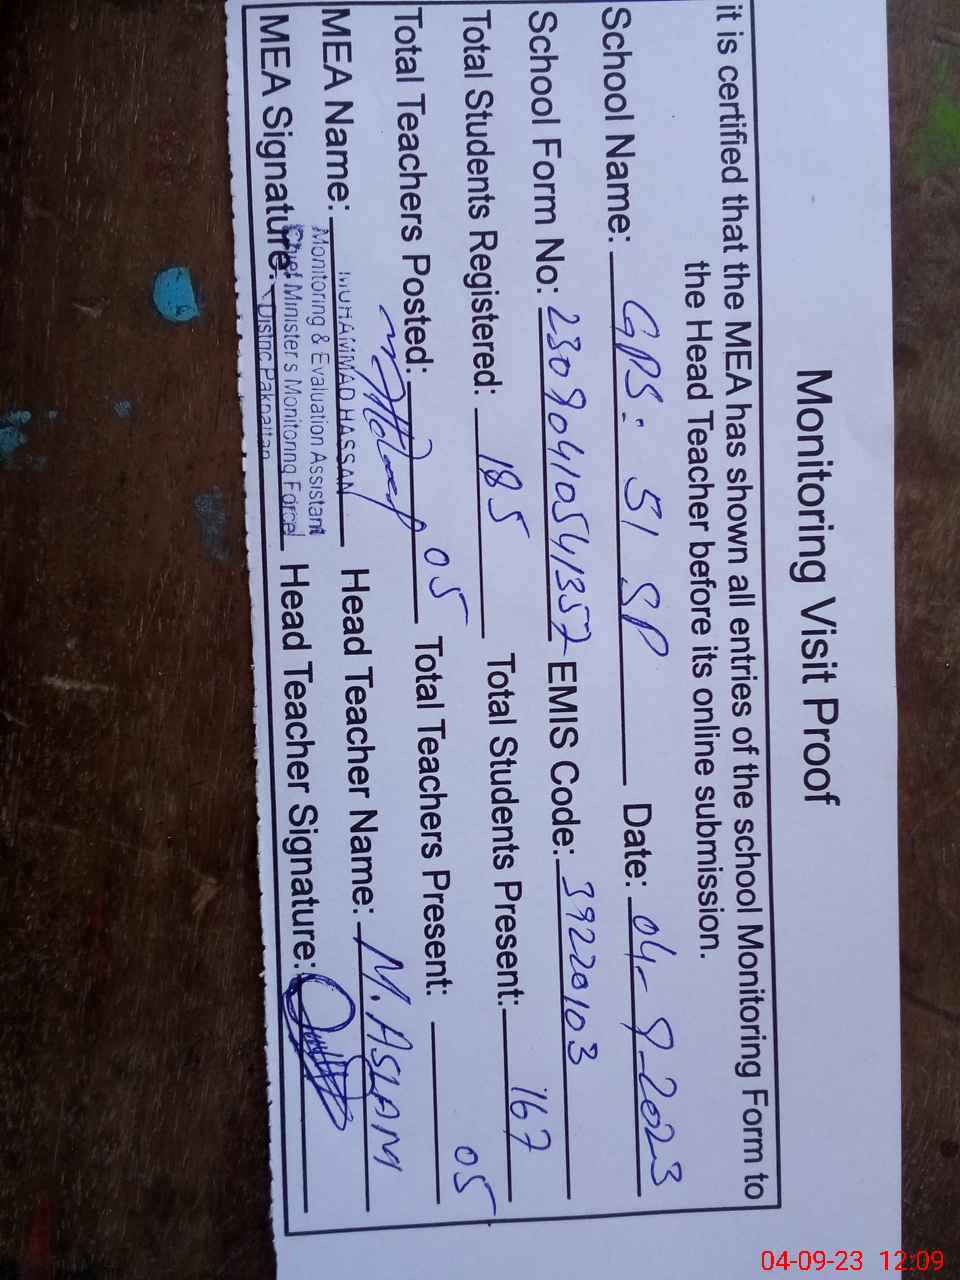 Monitoring Visit Proof
it is certified that the MEA has shown all entries of the school Monitoring Form to
the Head Teacher before its online submission.
School Name: GPS: 51 SP Date: 04-9-2023
School Form No: 23090410541357 EMIS Code: 39220103
Total Students Registered: 185 Total Students Present: 167
Total Teachers Posted: 05 Total Teachers Present: 05
MEA Name: MUHAMMAD HASSAN Head Teacher Name: M. ASLAM
Monitoring & Evaluation Assistant
Chief Minister s Monitoring Force
MEA Signature: Head Teacher Signature:
Distric Pakpattan
04-09-23 12:09